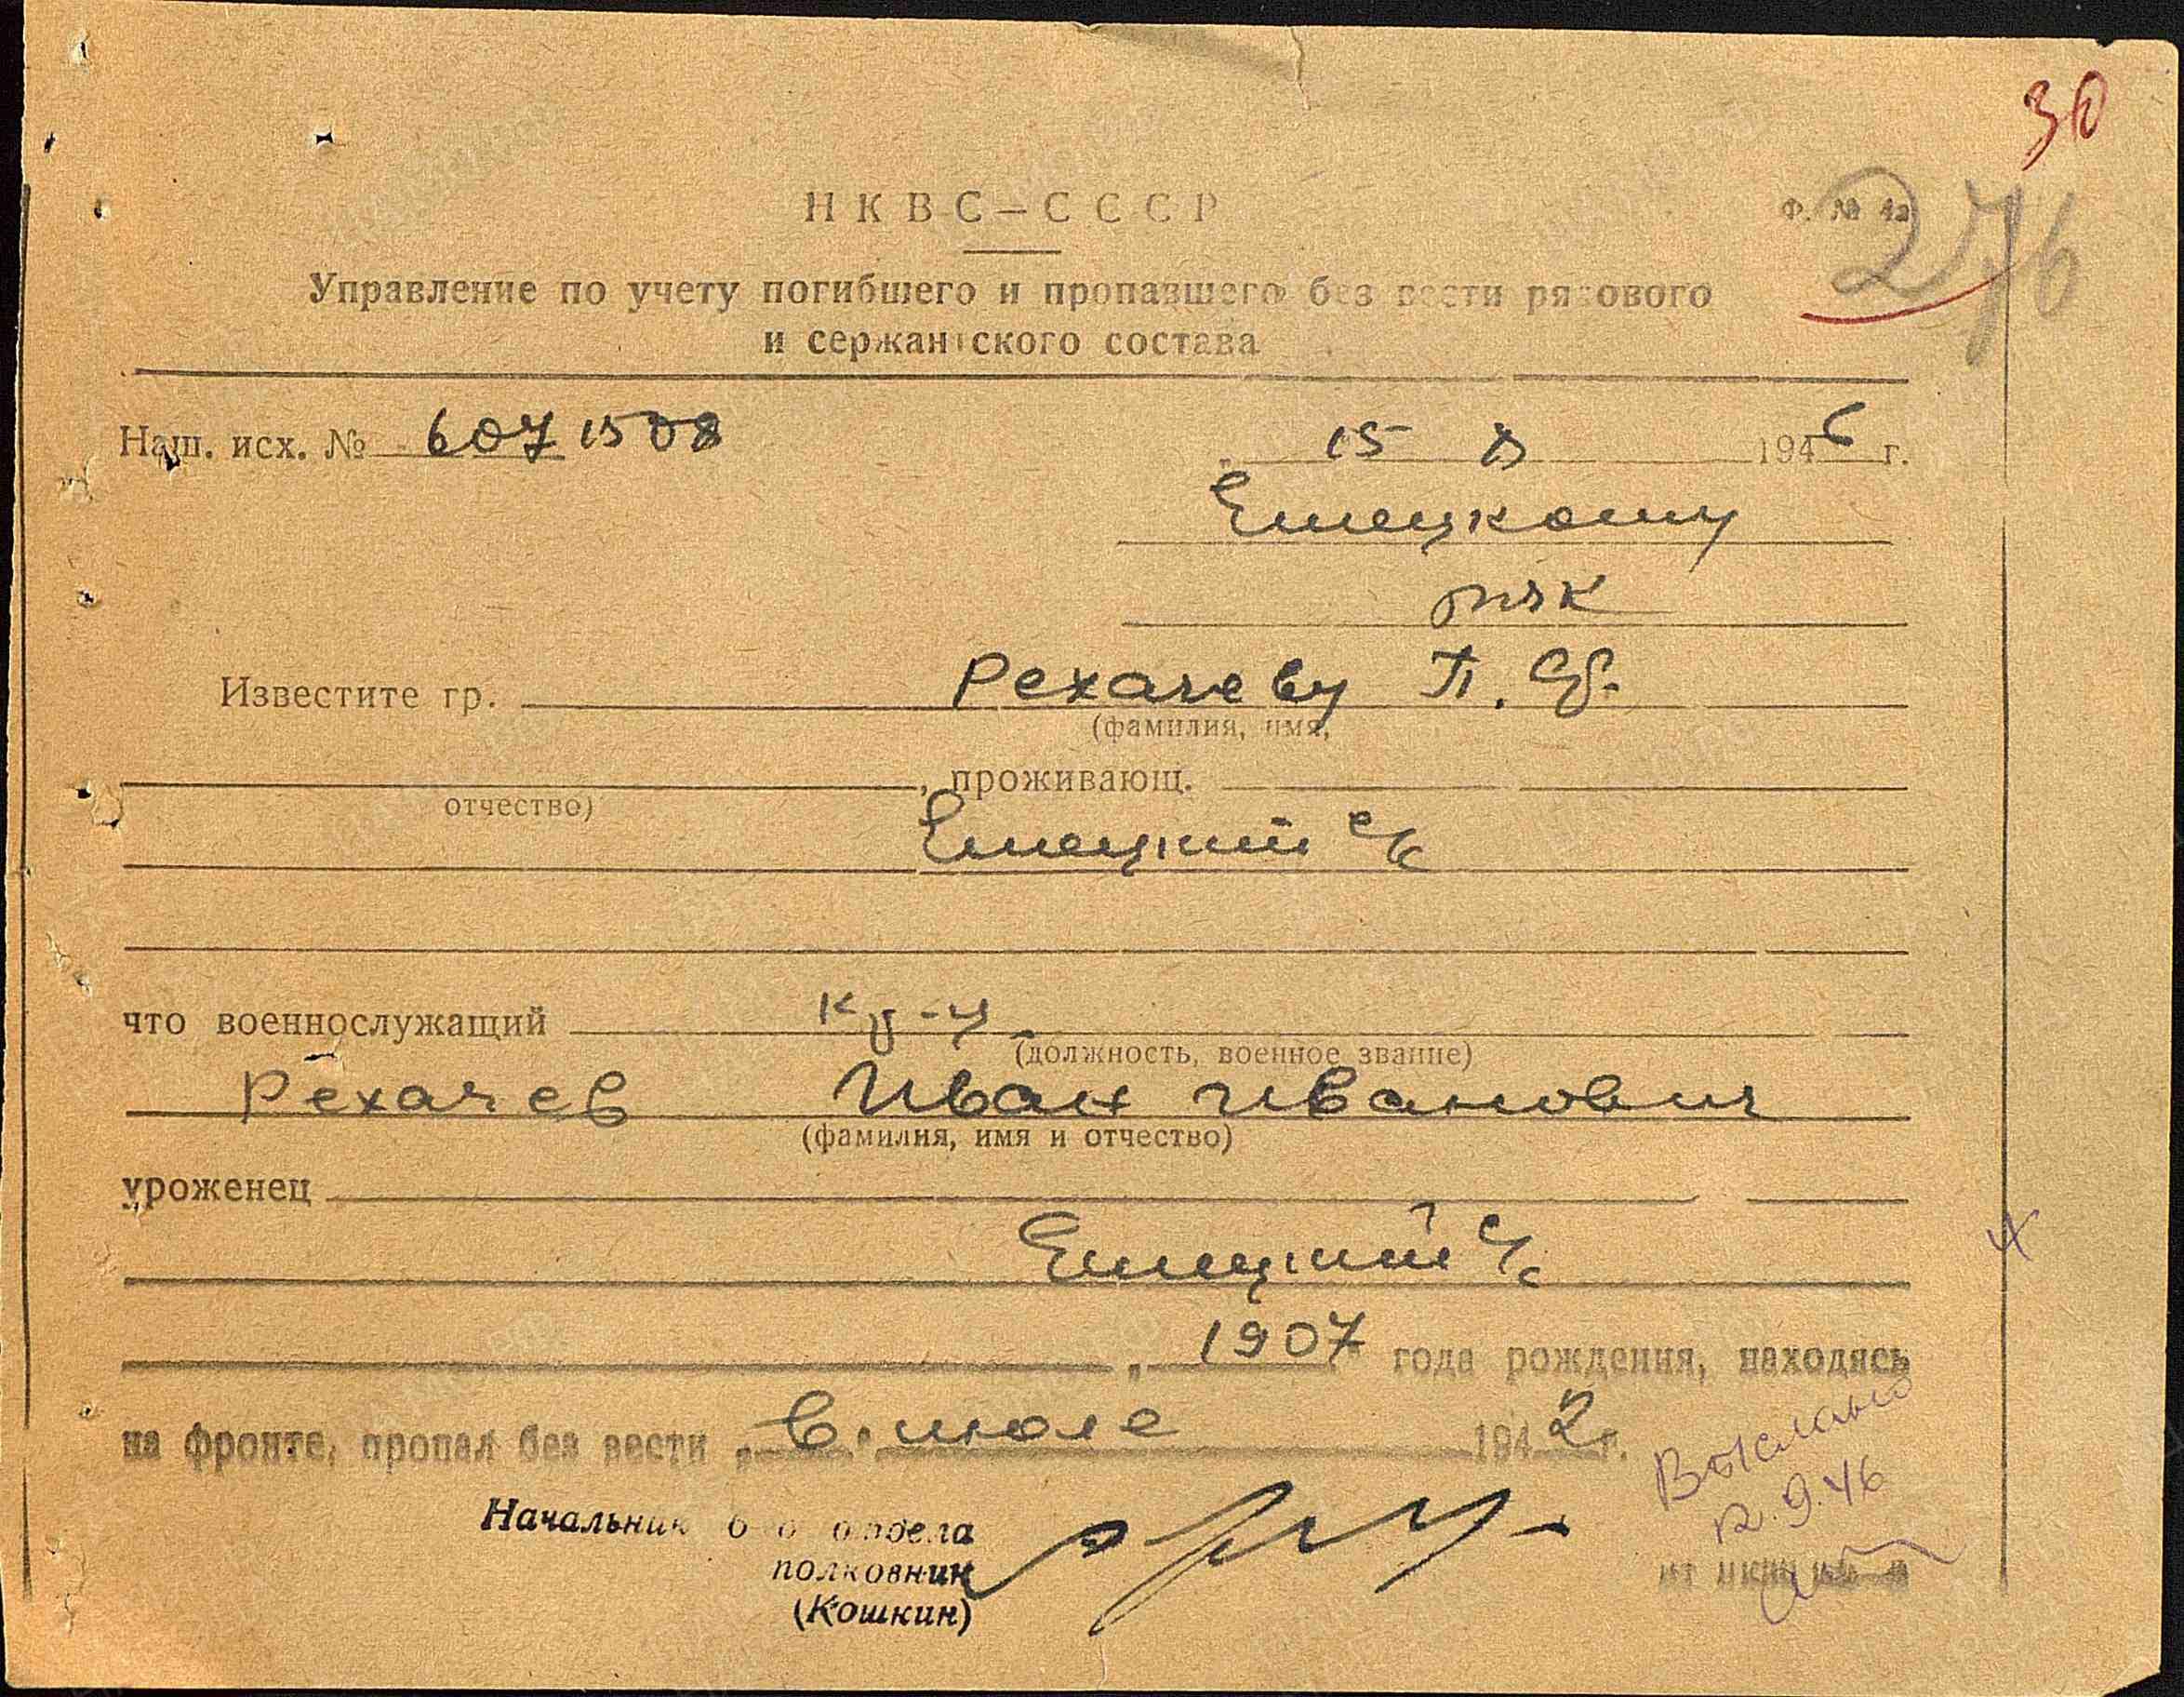 30
НКВС—СССР
Ф. № 4а
276
Управление по учету погибшего и пропавшего без вести рядового
и сержантского состава
Наш. исх. № 6071508
15 8 1946 г.
Емецкому
РВК
Известите гр. Рехачеву П. Ф.
(фамилия, имя,
, проживающ.
отчество)
Емецкий с/с
что военнослужащий кр-ц
(должность, военное звание)
Рехачев Иван Иванович
(фамилия, имя и отчество)
уроженец
Емецкий с/с
, 1907 года рождения, находясь
на фронте, пропал без вести „ в " июле 1942 г.
Выслано
12.9.46
Начальник 6-о отдела
полковник
(Кошкин)